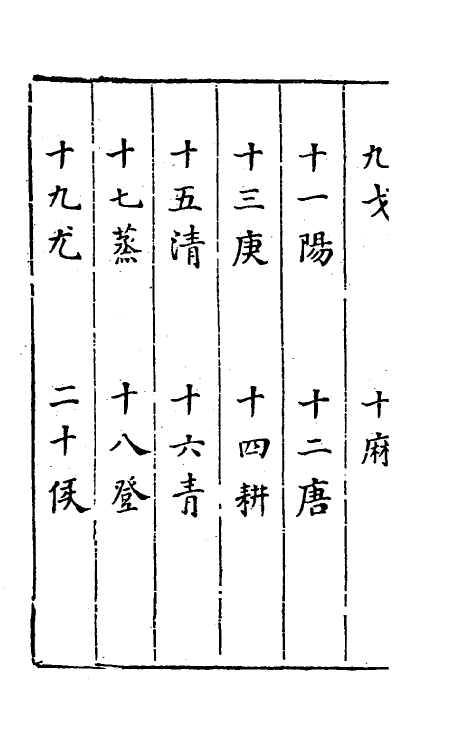 九戈　十麻
十一陽　十二唐
十三庚　十四耕
十五清　十六青
十七蒸　十八登
十九尤　二十侯